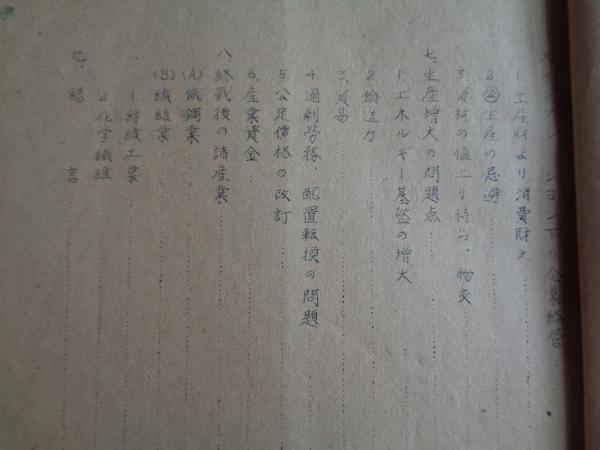 六、インフレーション下の企業経営
1. 生産財より消費財え
2. ㊂生産の忌避
3. 資材の値上り待ち、物交
七、生産増大の問題点
1. エネルギー基盤の増大
2. 輸送力
3. 貿易
4. 過剰労務、配置転換の問題
5. 公定價格の改訂
6. 産業資金
八、終戦後の諸産業
(A) 鐵鋼業
(B) 繊維業
1. 紡績工業
2. 化学繊維
九、結言